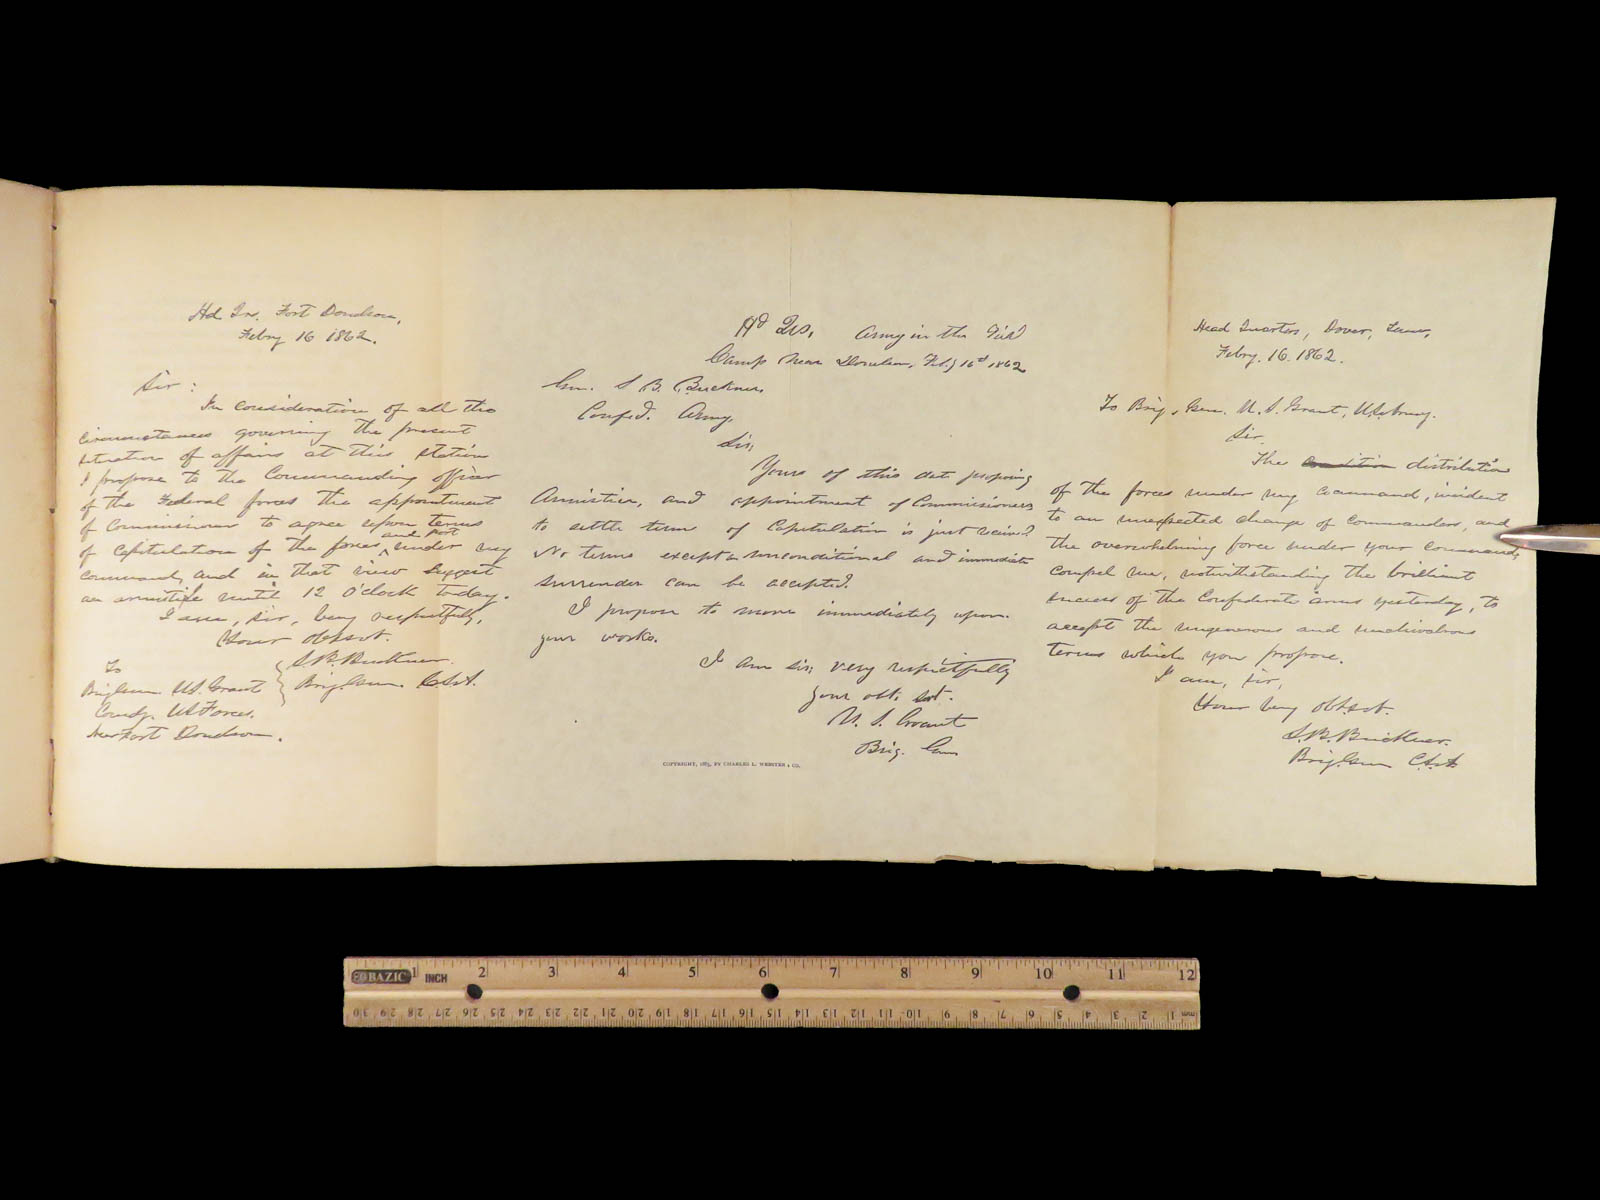 Hd Qrs. Fort Donelson,
Febry 16 1862.
Sir:
In consideration of all the
circumstances governing the present
situation of affairs at this station
I propose to the Commanding officer
of the Federal forces the appointment
of Commissioners to agree upon terms
and post
of capitulation of the forces under my
command, and in that view suggest
an armistice until 12 O'clock today.
I am, sir, very respectfully,
Your obt sevt.
S. B. Buckner.
Brig. Gen. C.S.A.
To
Brig Gen U.S. Grant
Comdg. US Forces,
Near Fort Donelson.
Hd Qrs, Army in the Field
Camp Near Donelson, Feby 16th 1862
Gen. S. B. Buckner,
Confed. Army,
Sir;
Yours of this date proposing
Armistice, and appointment of Commissioners
to settle terms of Capitulation is just received.
No terms except an unconditional and immediate
surrender can be accepted.
I propose to move immediately upon
your works.
I am sir; very respectfully
your obt. svt.
U. S. Grant
Brig. Gen
COPYRIGHT, 1885, BY CHARLES L. WEBSTER & CO.
Head Quarters, Dover, Tenn,
Febry. 16. 1862.
To Brig. Gen. U. S. Grant, U.S. Army.
Sir.
The condition distribution
of the forces under my command, incident
to an unexpected change of commanders, and
the overwhelming force under your command,
compel me, notwithstanding the brilliant
success of the Confederate arms yesterday, to
accept the ungenerous and unchivalrous
terms which you propose.
I am, sir,
Your very obt. svt.
S. B. Buckner.
Brig. Gen C.S.A.
BAZIC INCH 1 2 3 4 5 6 7 8 9 10 11 12
30 29 28 27 26 25 24 23 22 21 20 19 18 17 16 15 14 13 12 11 10 9 8 7 6 5 4 3 2 1 mm